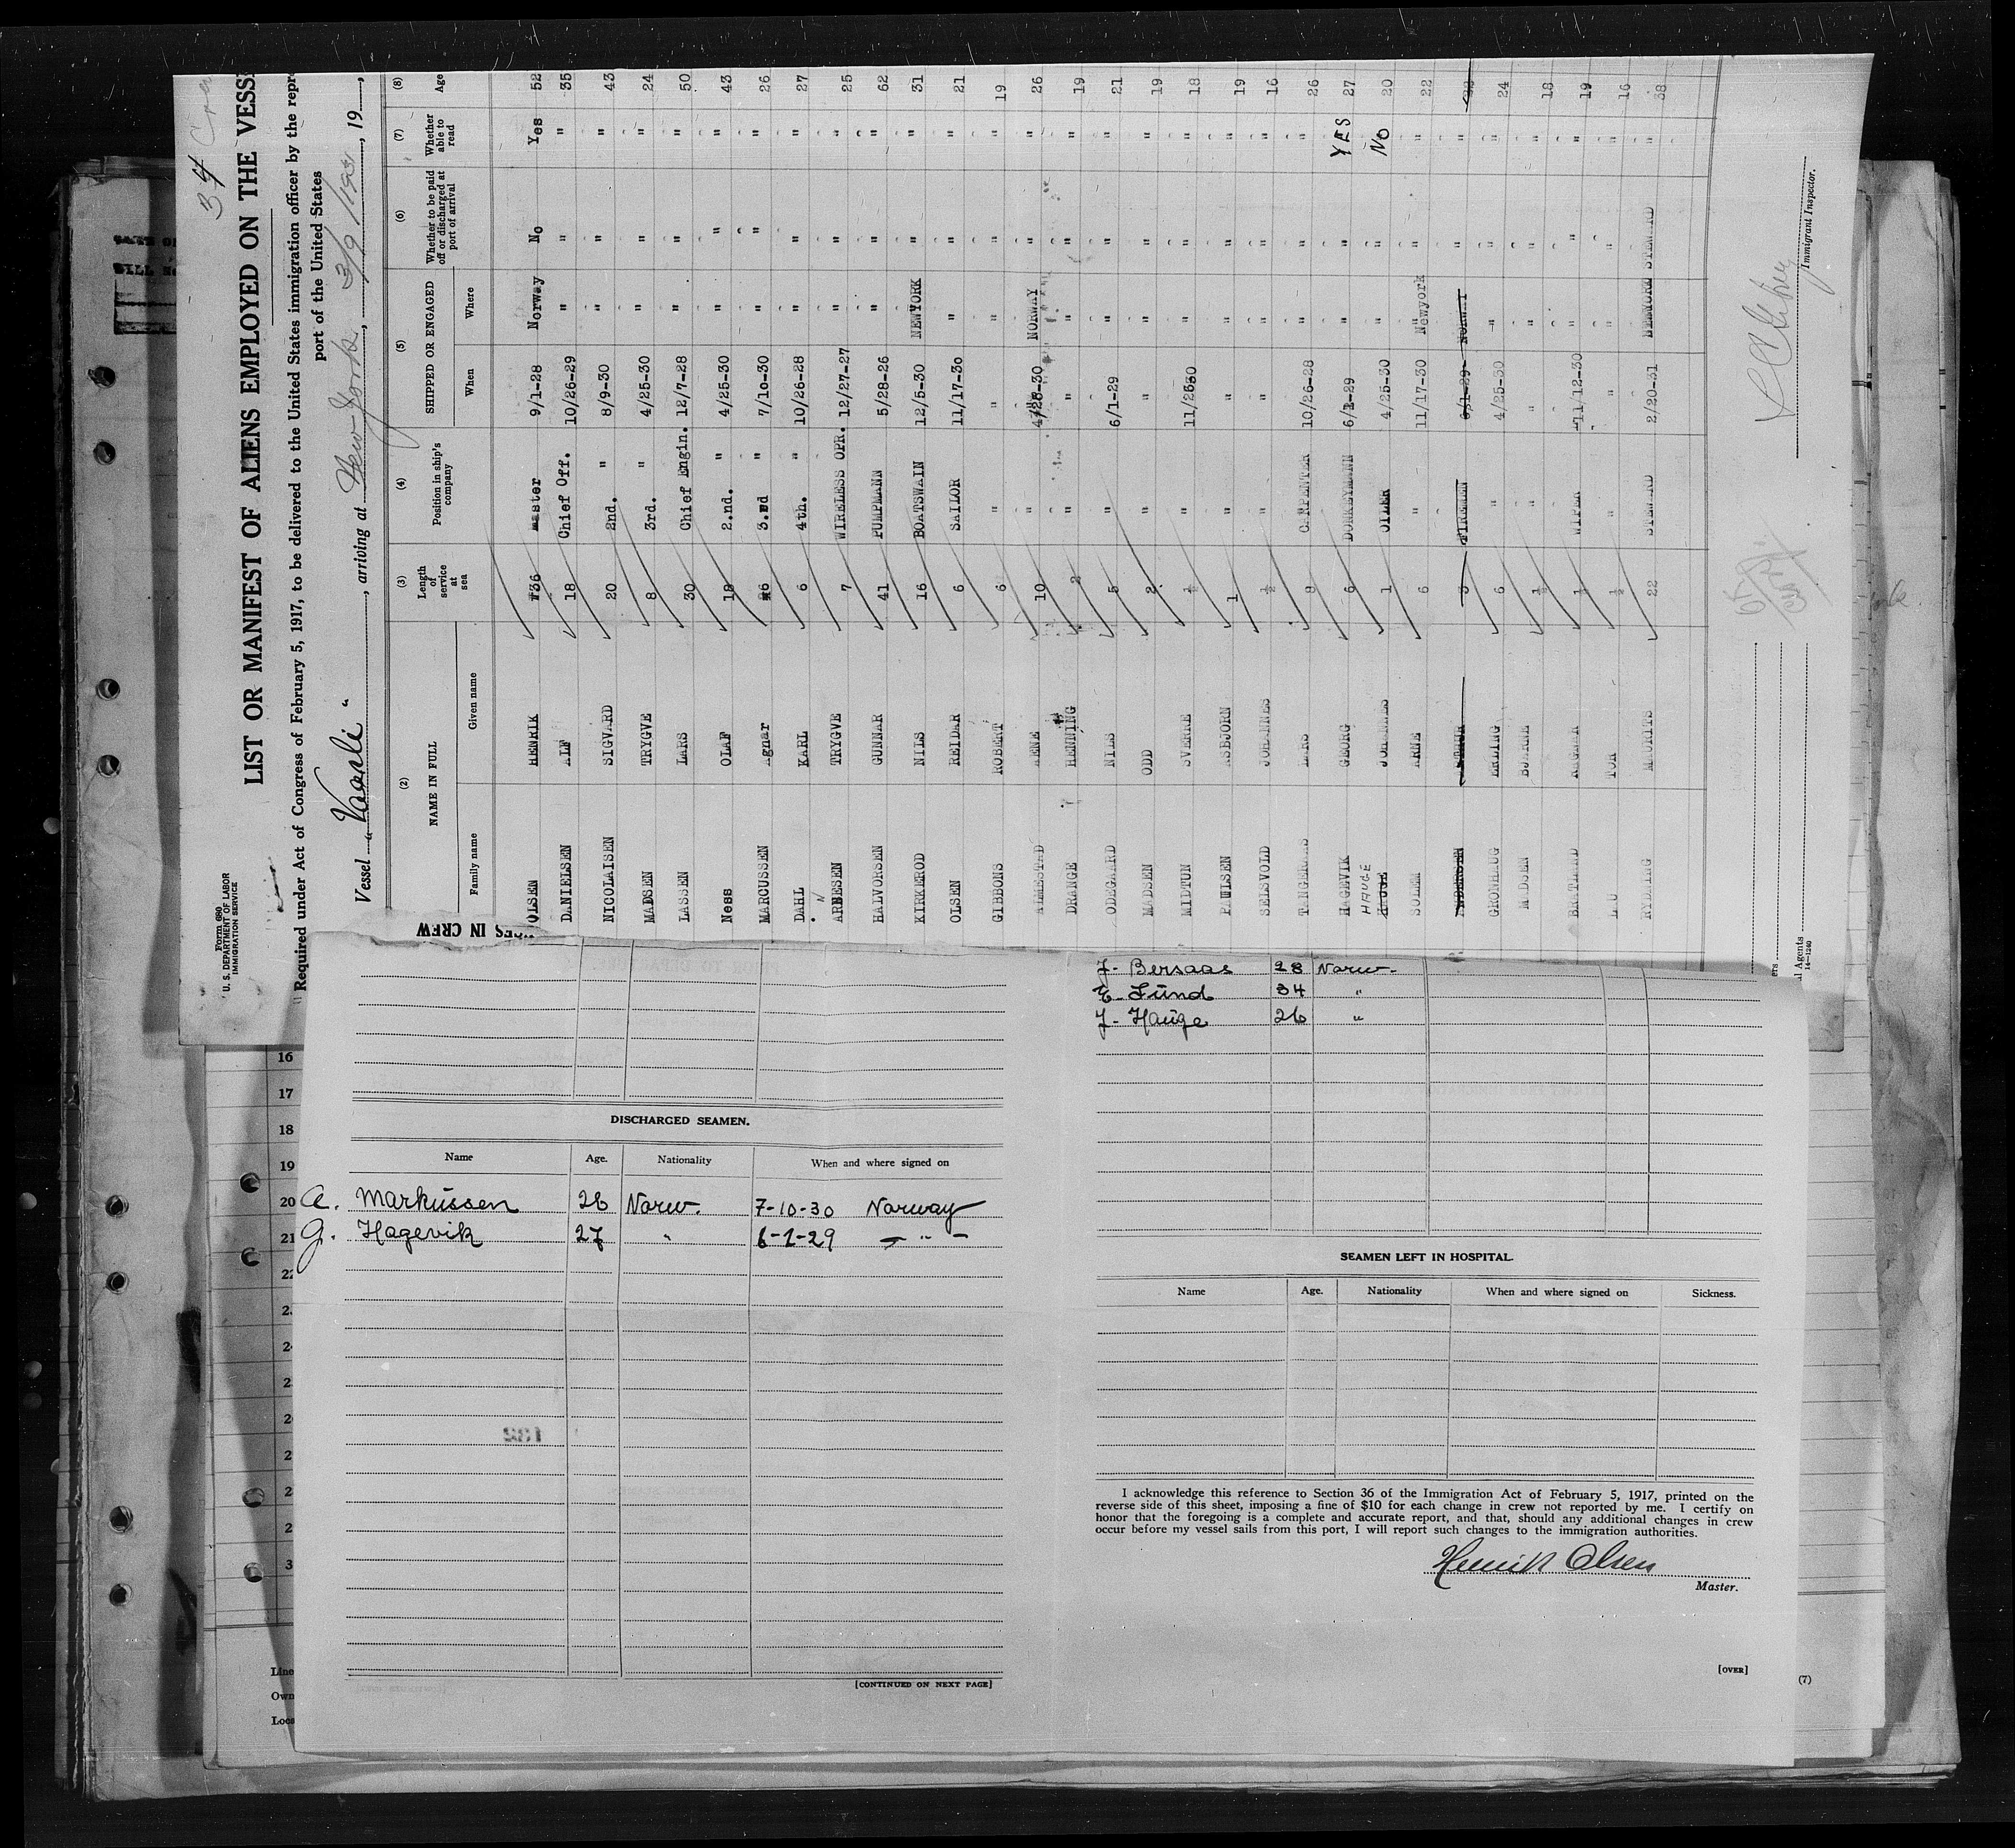 34
LIST OR MANIFEST OF ALIENS EMPLOYED ON THE VESS
Form 680
U. S. DEPARTMENT OF LABOR
IMMIGRATION SERVICE
Required under Act of Congress of February 5, 1917, to be delivered to the United States immigration officer by the repr
port of the United States
Vessel " Vaarli ", arriving at New York, 3/9/1931, 19
(2) (3) (4) (5) (6) (7) (8)
NAME IN FULL Length of service at sea Position in ship's company SHIPPED OR ENGAGED Whether to be paid off or discharged at port of arrival Whether able to read Age
Family name Given name When Where
OLSEN HENRIK 36 Master 9/1-28 Norway No Yes 52
DANIELSEN ALF 18 Chief Off. 10/26-29 " " " 35
NICOLAISEN SIGVARD 20 2nd. " 8/9-30 " " " 43
MADSEN TRYGVE 8 3rd. " 4/25-30 " " " 24
LASSEN LARS 30 Chief Engin. 12/7-28 " " " 50
Ness OLAF 18 2.nd. " 4/25-30 " " " 43
MARCUSSEN Agnar 6 3.rd " 7/10-30 " " " 26
DAHL KARL 6 4th. " 10/26-28 " " " 27
ARNESEN TRYGVE 7 WIRELESS OPR. 12/27-27 " " " 25
HALVORSEN GUNNAR 41 PUMPMANN 5/28-26 " " " 62
KIRKEROD NILS 16 BOATSWAIN 12/5-30 NEWYORK " " 31
OLSEN REIDAR 6 SAILOR 11/17-30 " " " 21
GIBBONS ROBERT 6 " " " " " 19
ALMESTAD ARNE 10 " 4/28-30 NORWAY " " 26
DRANGE HENNING 2 " " " " " 19
ODEGAARD NILS 5 " 6/1-29 " " " 21
MADSEN ODD 2 " " " " " 19
MIDTUN SVERRE ½ " 11/2530 " " " 18
PAULSEN ASBJORN 1 " " " " " 19
SELSVOLD JOHANNES ½ " " " " " 16
LARS CARPENTER 10/26-28 " " " 26
HAGEVIK GEORG 6 DONKEYMANN 6/1-29 " " YES 27
HAUGE JOHANNES 1 OILER 4/25-30 " " NO 20
SOLEM ARNE 6 " 11/17-30 Newyork " " 22
ANDERSEN ARTHUR 3 FIREMEN 6/1-29 NORWAY " "
GRONHAUG ERLING 6 " 4/25-30 " " " 24
MADSEN BJARNE ½ " " " " " 18
BRATLAND RAGNAR WIPER 11/12-30 " " " 19
TOR ½ " " " " 16
RYDNING MAURITS 22 STEWARD 2/20-31 NEWYORK STEWARD " 38
Immigrant Inspector.
ers
l Agents
14-1240
GES IN CREW
J. Bersaas 28 Norw.
E. Lund 34 "
J. Hauge 26 "
16
17
18
19
20
21
DISCHARGED SEAMEN.
Name Age. Nationality When and where signed on
A. Markussen 26 Norw. 7-10-30 Norway
G. Hagevik 27 " 6-1-29 - " -
[CONTINUED ON NEXT PAGE]
SEAMEN LEFT IN HOSPITAL.
Name Age. Nationality When and where signed on Sickness.
I acknowledge this reference to Section 36 of the Immigration Act of February 5, 1917, printed on the
reverse side of this sheet, imposing a fine of $10 for each change in crew not reported by me. I certify on
honor that the foregoing is a complete and accurate report, and that, should any additional changes in crew
occur before my vessel sails from this port, I will report such changes to the immigration authorities.
Henrik Olsen
Master.
[OVER]
(7)
Line
Own
Loca